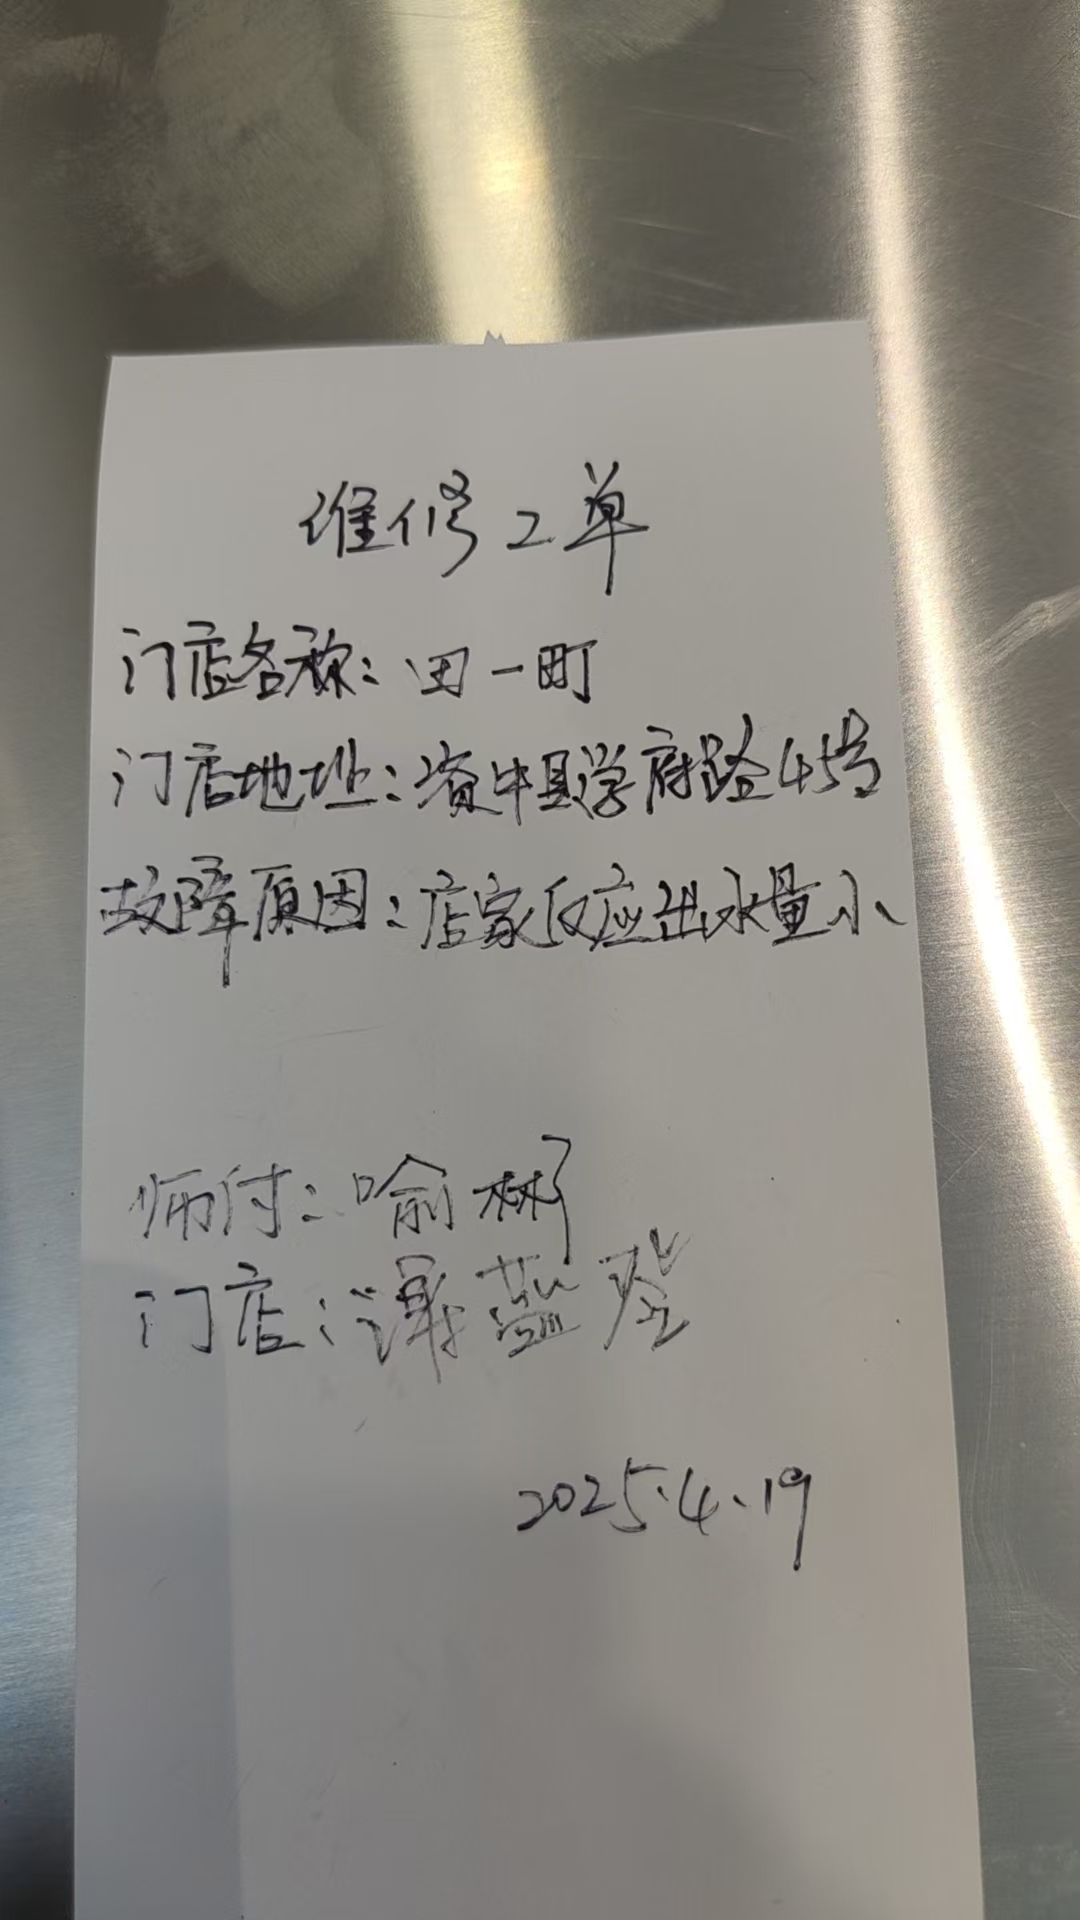 维修工单
门店名称：田一町
门店地址：资中县学府路45号
故障原因：店家反应出水量小
师付：喻彬
门店：谭蓝登
2025.4.19